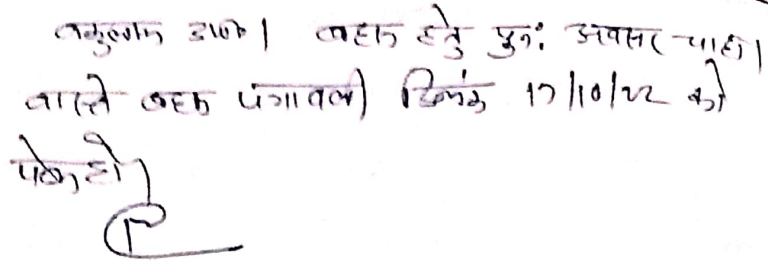 वकुलाय उप०। बहस हेतु पुनः अवसर चाहा।
वास्ते बहस पत्रावली दिनांक 17/10/22 को
पेश हो।